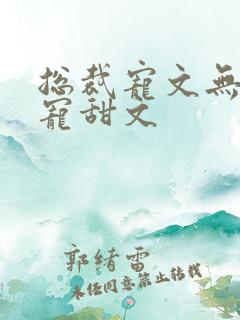 总裁宠文無
宠甜文
郭绪雷
未经同意禁止转载